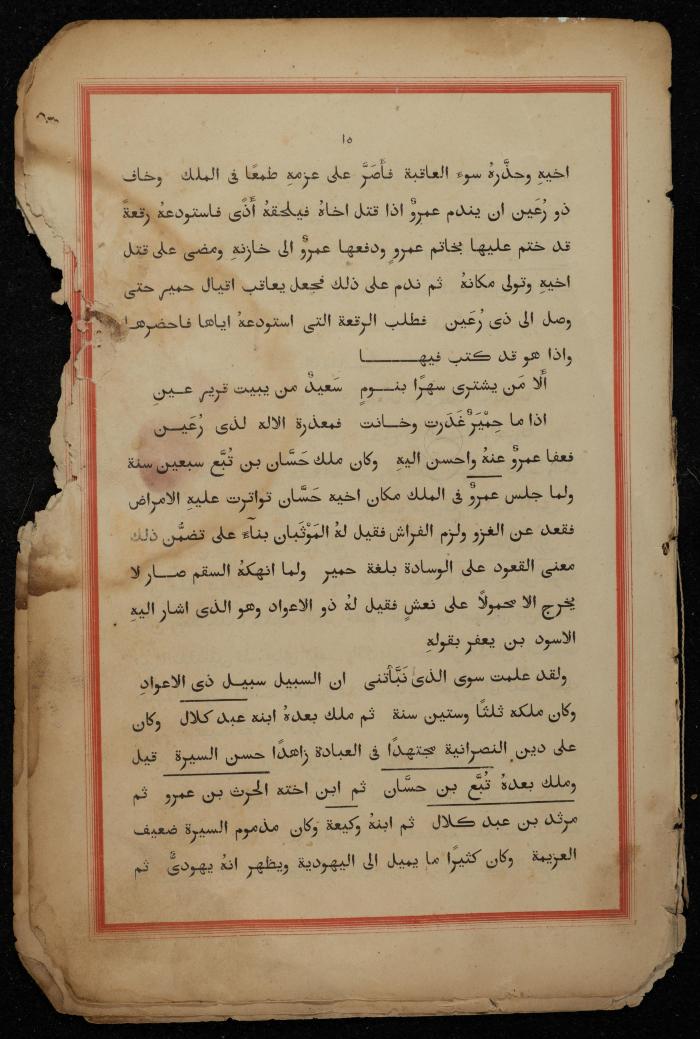 ١٥
اخيهِ وحذَّرهُ سوء العاقبة فأَصَرَّ على عزمهِ طمعًا فى الملك وخاف
ذو رُعَين ان يندم عمروٌ اذا قتل اخاهُ فيلحقهُ أَذًى فاستودعهُ رقعةً
قد ختم عليها بخاتم عمرٍو ودفعها عمروٌ الى خازنهِ ومضى على قتل
اخيهِ وتولى مكانهُ ثم ندم على ذلك فجعل يعاقب اقيال حمير حتى
وصل الى ذى رُعَين فطلب الرقعة التى استودعهُ اياها فاحضرهـا
واذا هو قد كتب فيهـــــا
أَلا مَن يشترى سهرًا بنــومٍ سَعيدٌ من يبيت قرير عــينِ
اذا ما حِمْيَرٌ غَدَرت وخــانت فمعذرة الاله لذى رُعَيــن
فعفا عمروٌ عنهُ واحسن اليهِ وكان ملك حَسَّان بن تُبَّع سبعين سنة
ولما جلس عمروٌ فى الملك مكان اخيه حَسَّان تواترت عليهِ الامراض
فقعد عن الغزو ولزم الفراش فقيل لهُ المَوْثَبان بناءً على تضمُّن ذلك
معنى القعود على الوسادة بلغة حمير ولما انهكهُ السقم صــار لا
يخرج الا محمولًا على نعشٍ فقيل لهُ ذو الاعواد وهو الذى اشار اليهِ
الاسود بن يعفر بقولهِ
ولقد علمت سوى الذى نَبَّأتنى ان السبيل سبيــل ذى الاعوادِ
وكان ملكه ثلثًا وستين سنة ثم ملك بعدهُ ابنه عبد كلال وكان
على دين النصرانية مجتهدًا فى العبادة زاهدًا حسن السيرة قيل
وملك بعدهُ تُبَّع بن حسَّان ثم ابن اخته الحرث بن عمرو ثم
مرثد بن عبد كــلال ثم ابنهُ وكيعة وكان مذموم السيرة ضعيف
العزيمة وكان كثيرًا ما يميل الى اليهودية ويظهر انهُ يهودىٌّ ثم